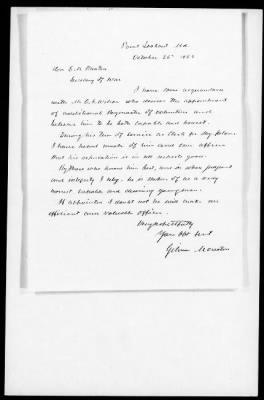 Point Lookout Md
October 25th 1863
Hon E. M. Stanton
Secretary of War
I have some acquaintance
with Mr. Wilson who desires the appointment
of additional Paymaster of Volunteers and
believe him to be both capable and honest.
During his term of service as Clerk for
I have heard much of him and can affirm
that his reputation is in all respects good.
By those who know him best, and in whose judgment
and integrity I rely, he is spoken of as a very
honest, reliable and deserving young man.
If appointed I doubt not he will make an
efficient and valuable officer.
Very respectfully
Your Obt Servt
Gilman Marston